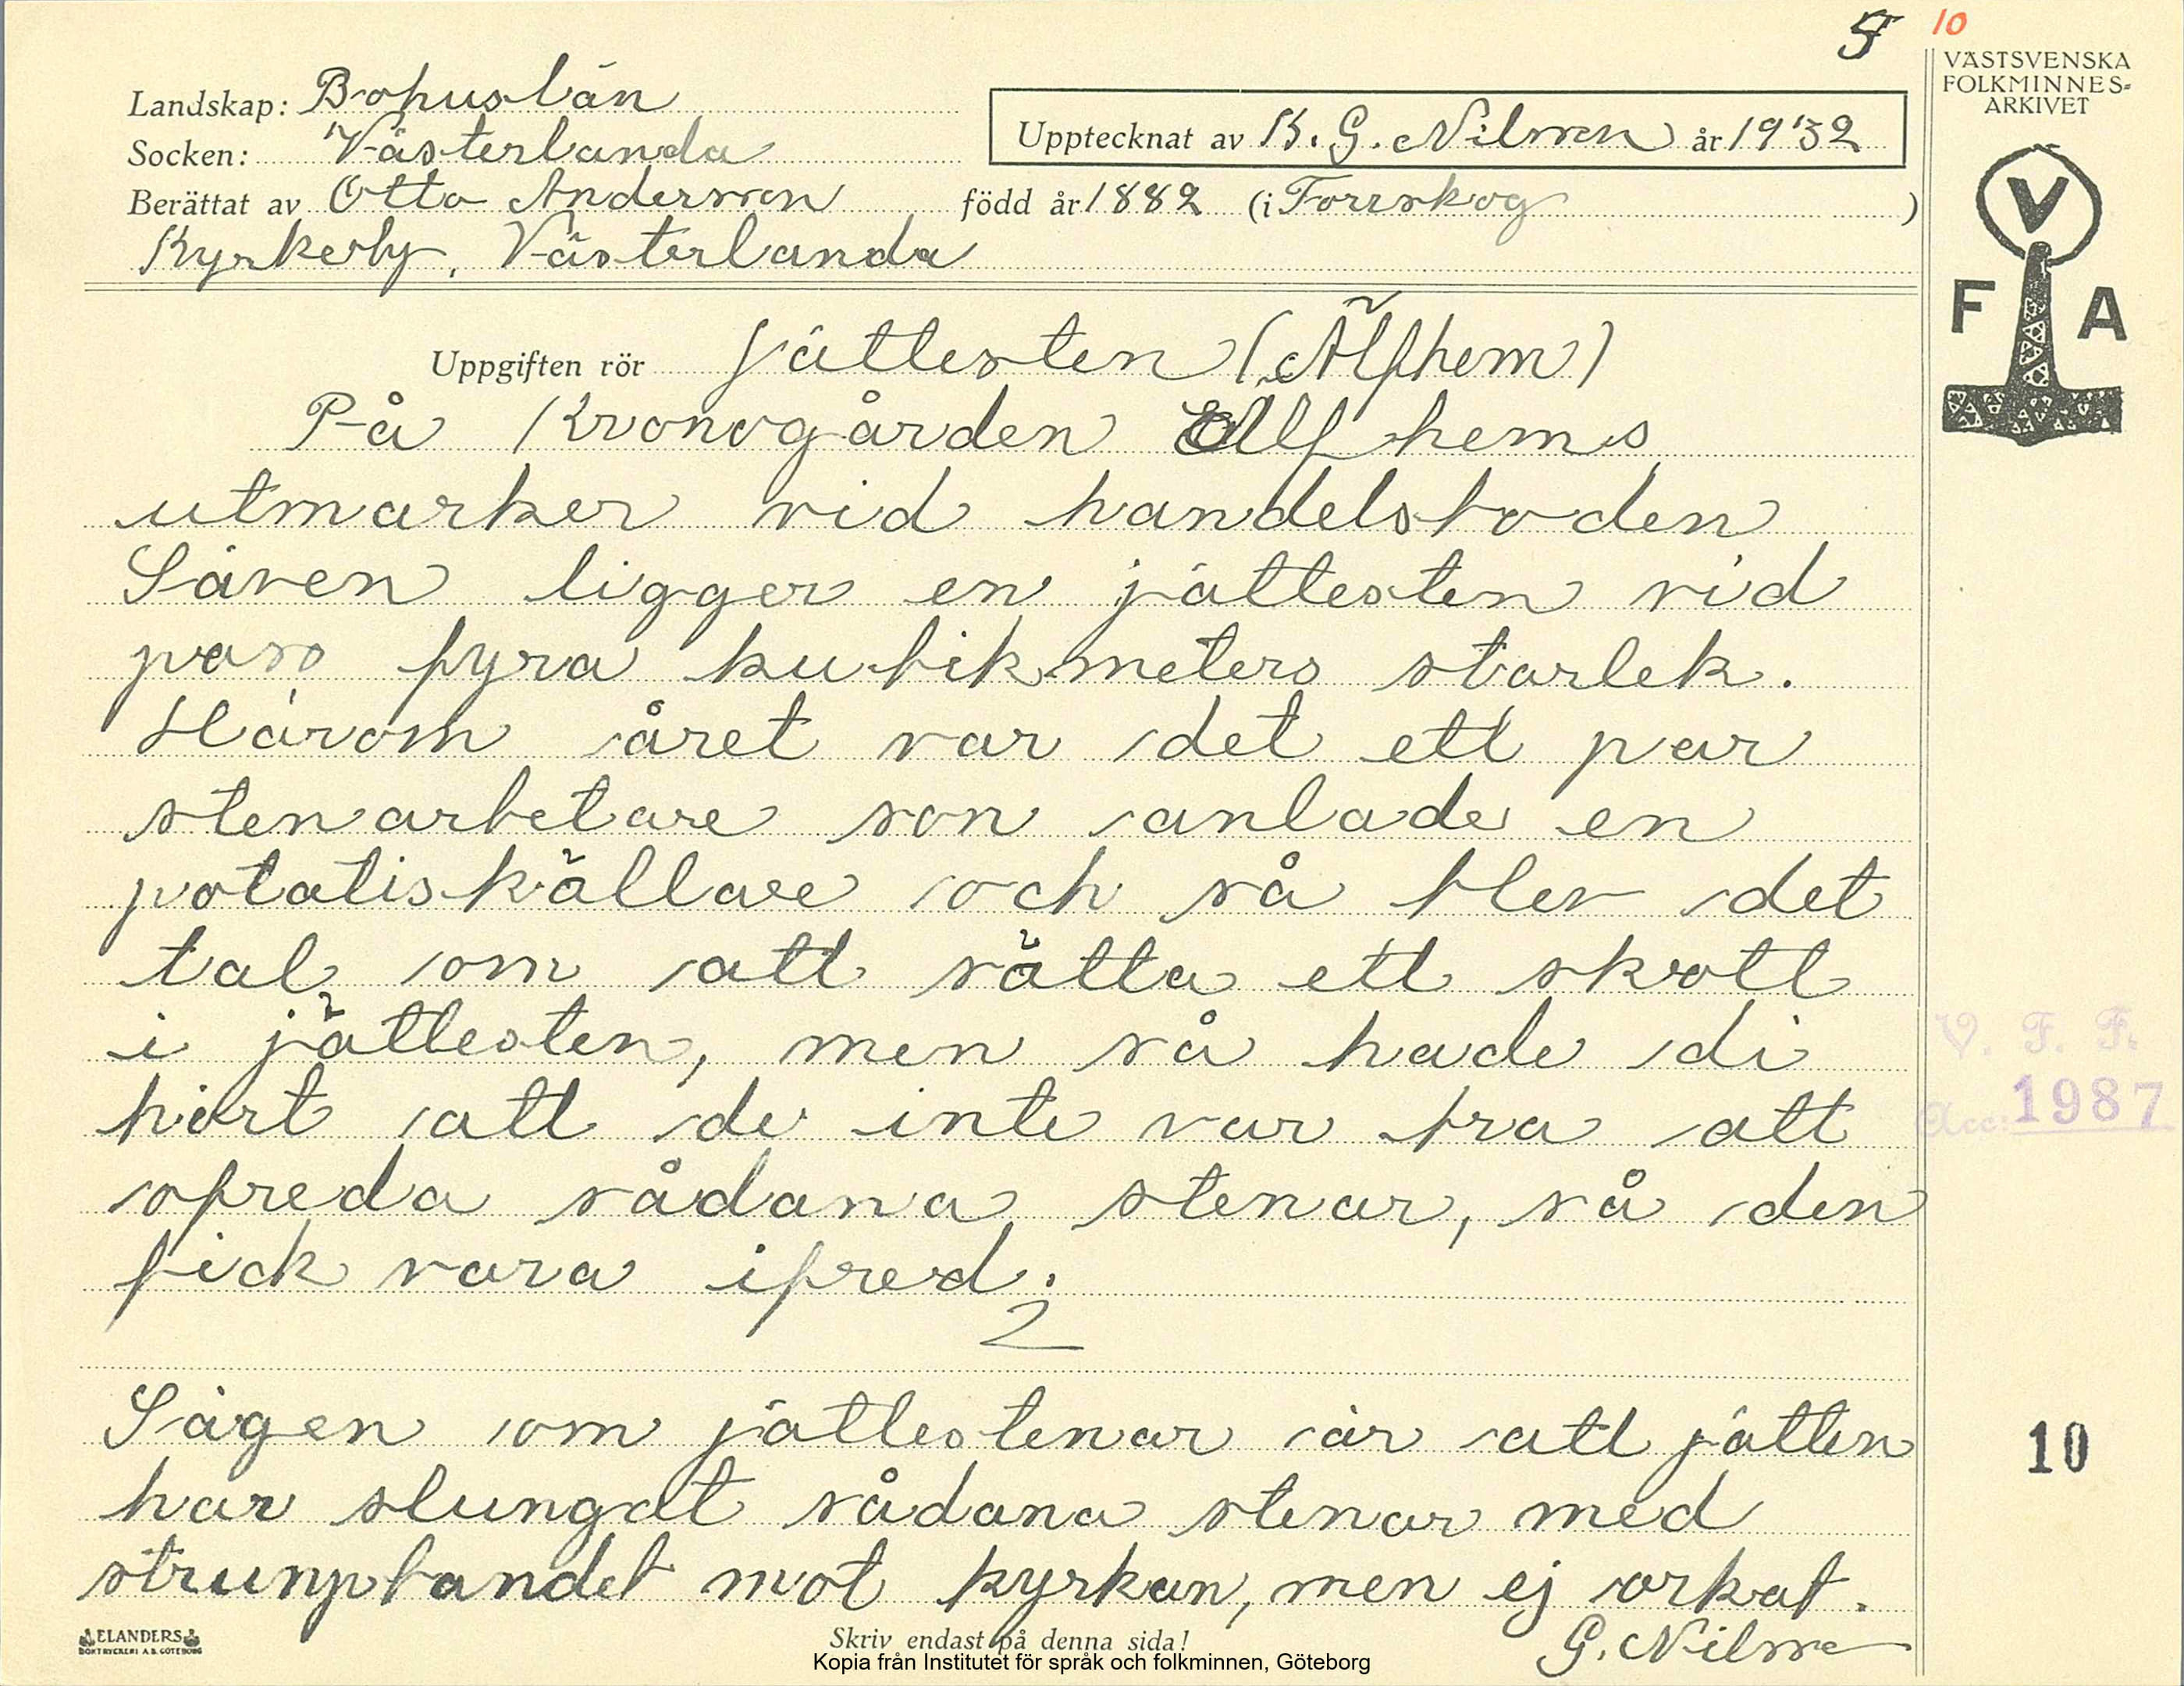 5 10
VÄSTSVENSKA
FOLKMINNES-
ARKIVET
Landskap: Bohuslän
Upptecknat av K. G. Nilsson år 1932
Socken: Västerlanda
Berättat av Otto Andersson född år 1882 (i Forrskog)
Kyrkeby, Västerlanda
V
F A
Uppgiften rör Jättesten (Älfhem)
På Kronogården Elfhems
utmarker vid handelsboden
Säven ligger en jättesten vid
pass fyra kubikmeters storlek.
Härom året var det ett par
stenarbetare son anlade en
potatiskällare och så blev det
tal om att sätta ett skott
i jättesten, men så hade di
hört att de inte var bra att
ofreda sådana stenar, så den
fick vara ifred.
2
Sägen om jättestenar är att jätten
har slungat sådana stenar med
strumpbandet mot kyrkan, men ej orkat.
G. Nilsson
V. F. F.
Acc: 1987
10
ELANDERS
BOKTRYCKERI A.B. GÖTEBORG
Skriv endast på denna sida!
Kopia från Institutet för språk och folkminnen, Göteborg